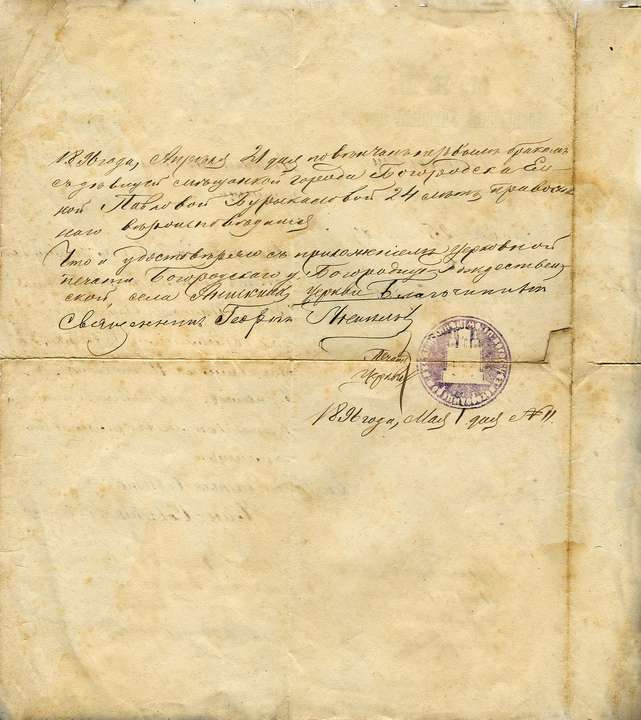 1896 года, Апрѣля 21 дня повѣнчанъ первымъ бракомъ
съ дѣвицей мѣщанкой города Богородска Еле
ной Павловой 24 лѣтъ православ
наго вѣроисповѣданія.
Что и удостовѣряю съ приложеніемъ церковной
печати Богородскаго у. Богородице-Рождествен
ской, села церкви Благочинный
Священникъ Георгій
Печать
Церкви
1896 года, Мая 1 дня № 11.